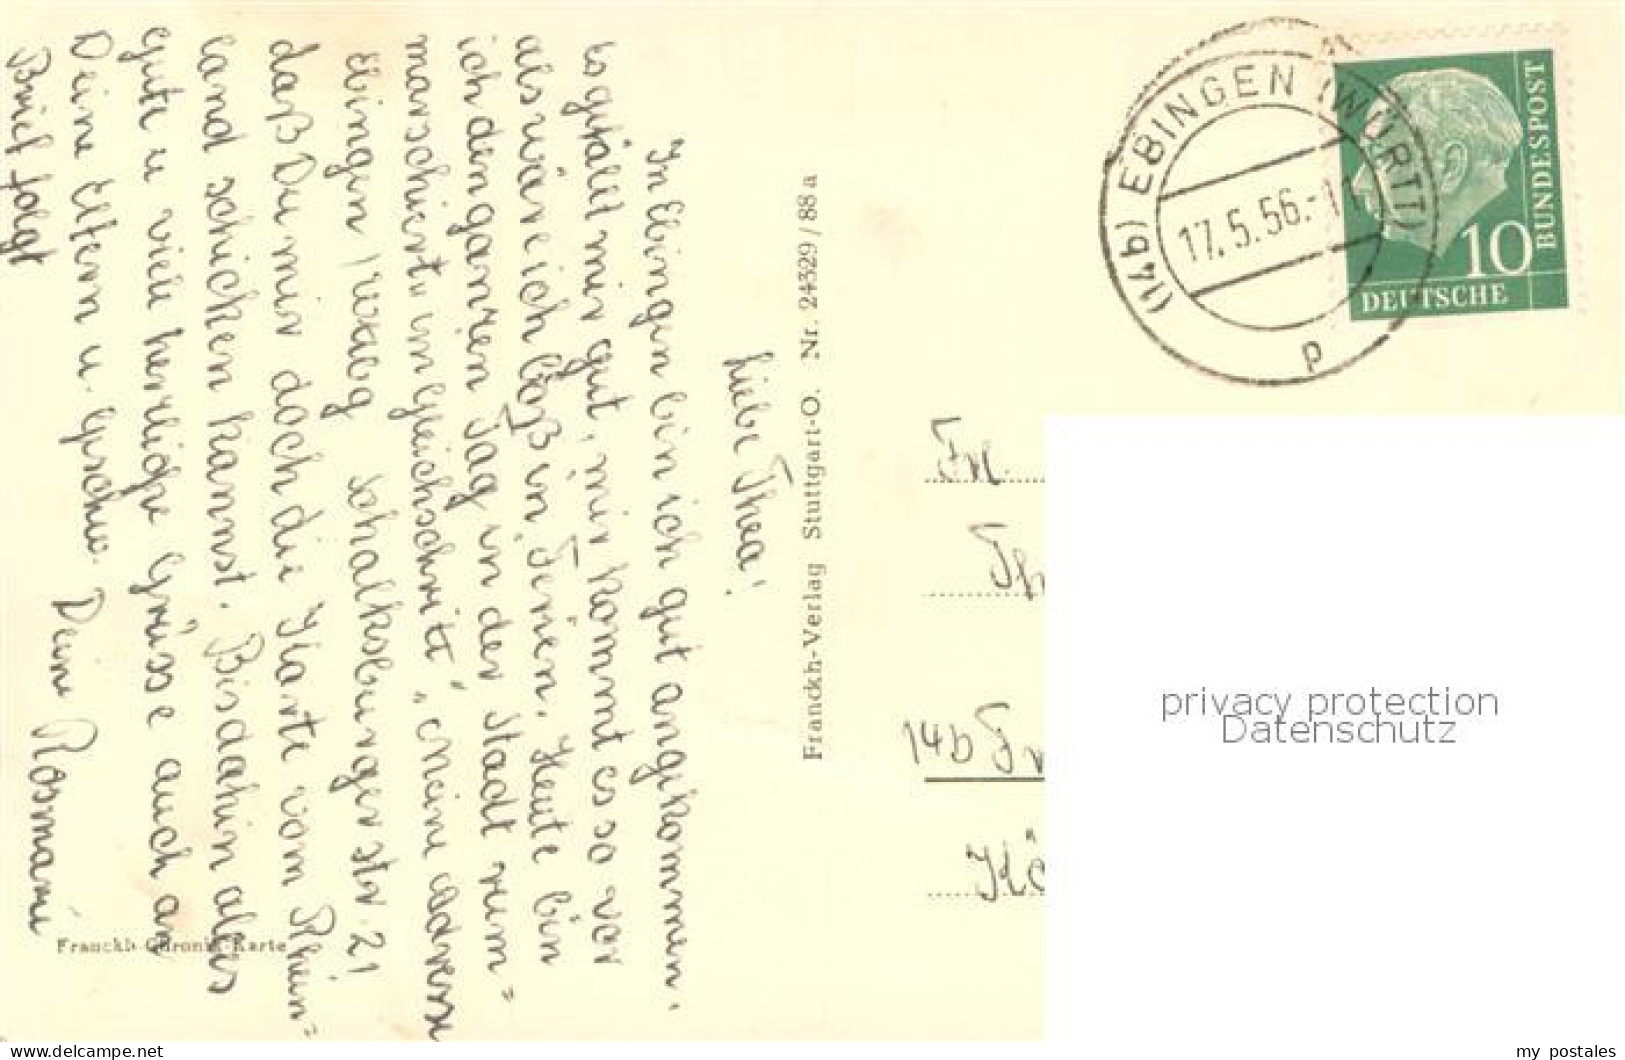 Liebe Thea!
In Ebingen bin ich gut angekommen,
es gefällt mir gut, mir kommt es so vor
als wäre ich bloß in Ferien. Heute bin
ich den ganzen Tag in der Stadt rum=
marschiert „im Gleichschritt". Meine Adresse
Ebingen / Wttbg Schalksburgerstr. 21
daß Du mir doch die Karte vom Rhein=
land schicken kannst. Bis dahin alles
gute u viele herzliche Grüsse auch an
Deine Eltern u. Geschw. Deine Rosmarie
Brief folgt
Franckh-Chronik-Karte
Franckh-Verlag Stuttgart-O. Nr. 24329/88 a
(14b) EBINGEN (WÜRTT)
17.5.56.-11
p
10
DEUTSCHE
BUNDESPOST
Frl.
Th
14b Fr
Kö
privacy protection
Datenschutz
www.delcampe.net
my_postales